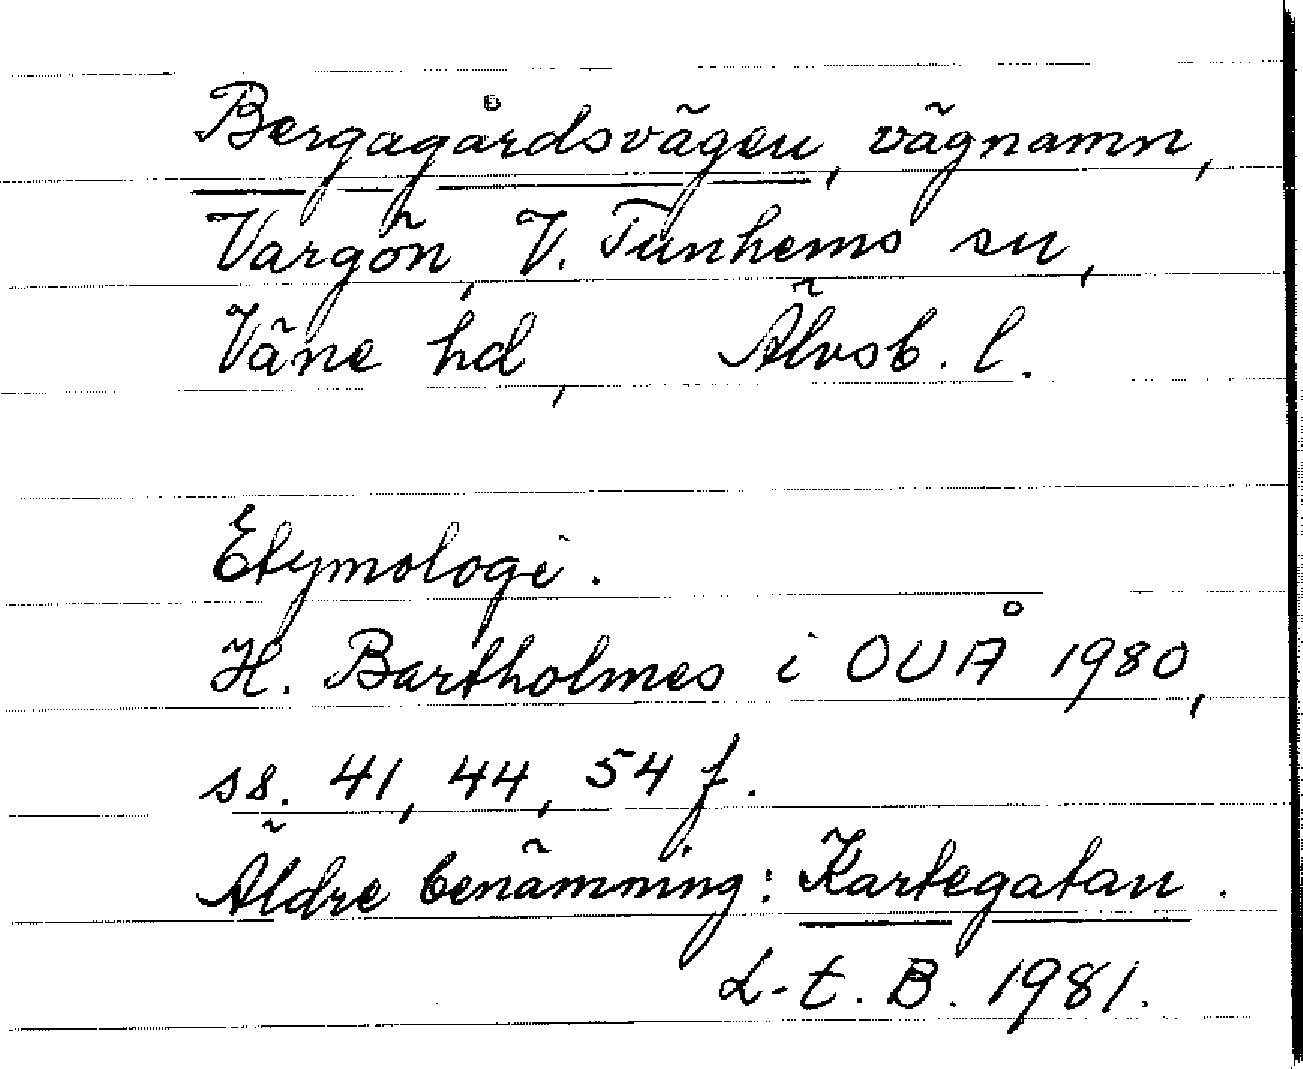 Bergagårdsvägen, vägnamn,
Vargön, V. Tunhems sn,
Väne hd, Älvsb. l.
Etymologi.
H. Bartholmes i OUÅ 1980,
ss. 41, 44, 54 f.
Äldre benämning: Kartegatan.
L-t. B. 1981.